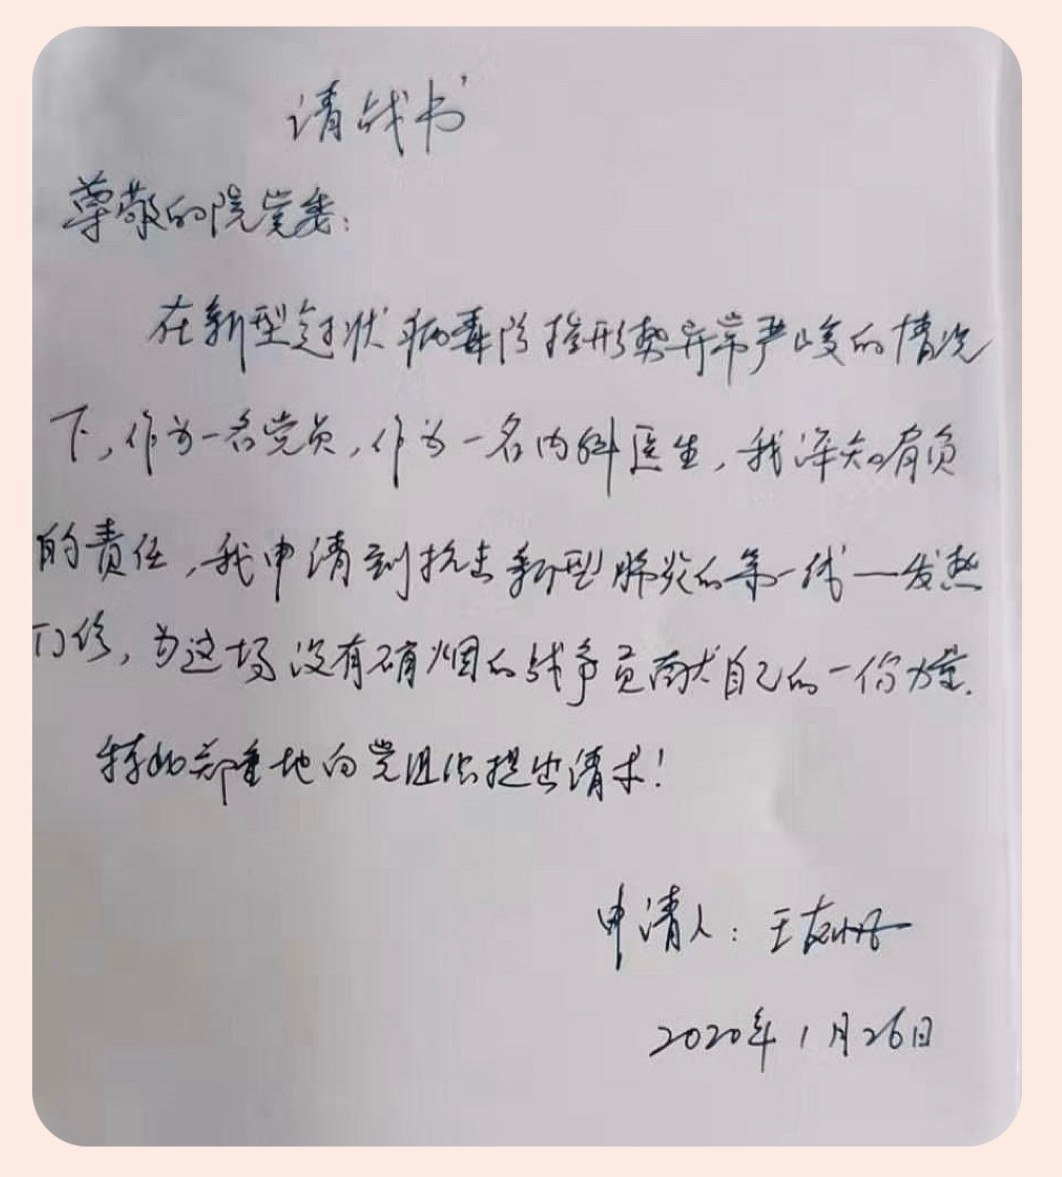 请战书
尊敬的院党委:
在新型冠状病毒防控形势异常严峻的情况
下,作为一名党员,作为一名内科医生,我深知肩负
的责任,我申请到抗击新型肺炎的第一线一发热
门诊,为这场没有硝烟的战争贡献自己的一份力量.
特此郑重地向党组织提出请求!
申请人:王
2020年1月26日